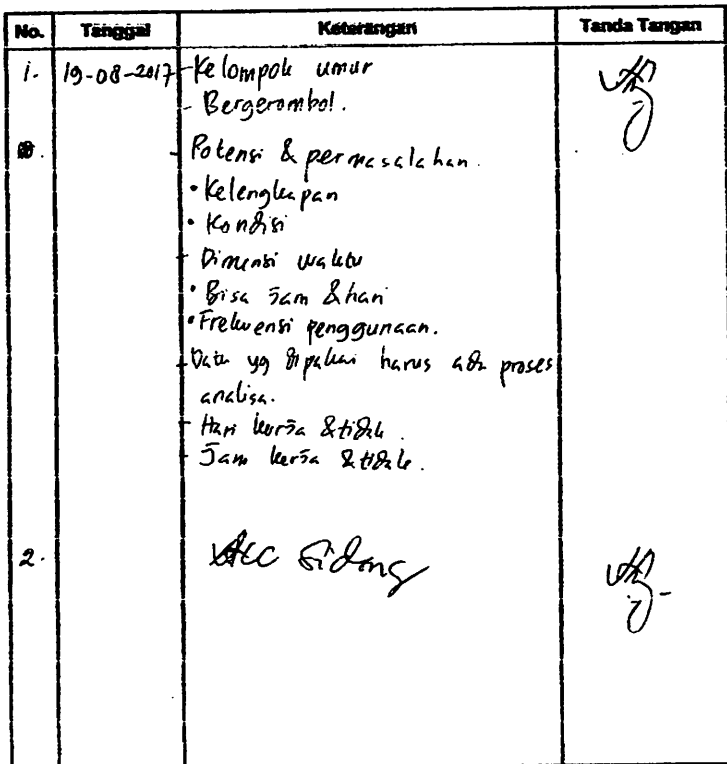 No. Tanggal Keterangan Tanda Tangan
1. 19-08-2017 - Kelompok umur
- Bergerombol.
- Potensi & permasalahan.
• Kelengkapan
• Kondisi
- Dimensi waktu
• Bisa Jam & hari
• Frekuensi penggunaan.
- Data yg dipakai harus ada proses
analisa.
- Hari kerja & tidak.
- Jam kerja & tidak.
2. Acc Sidang